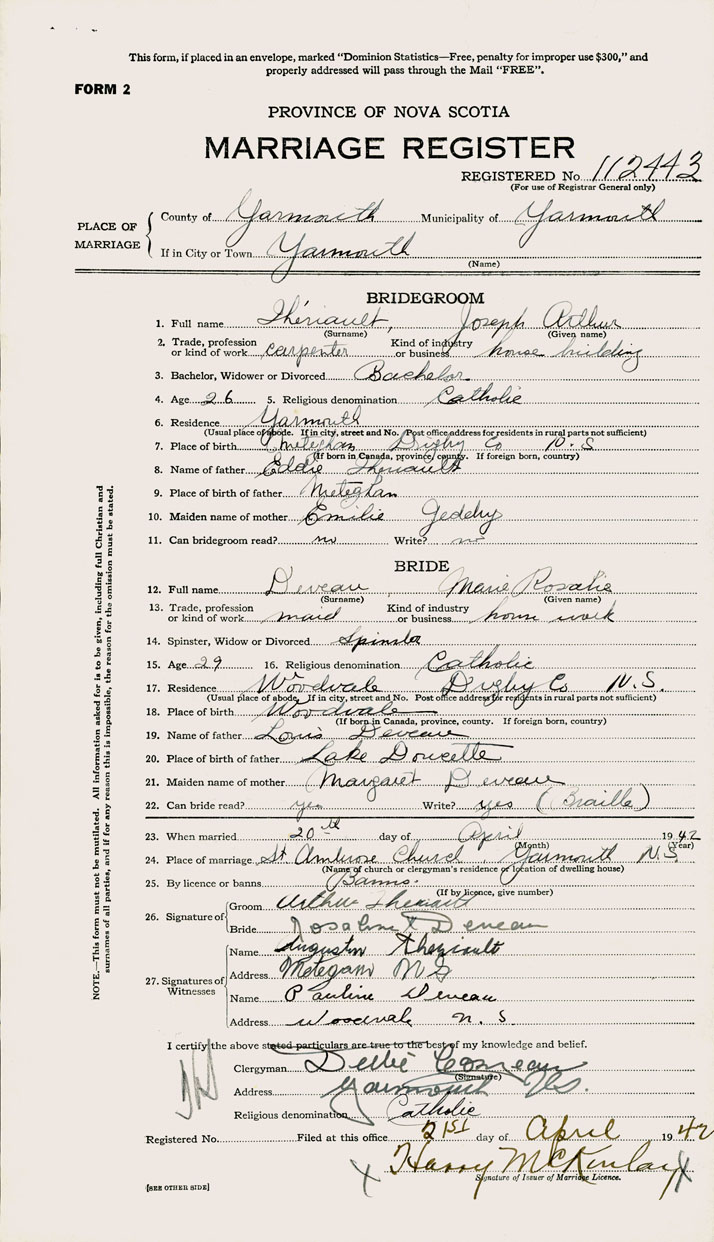 This form, if placed in an envelope, marked "Dominion Statistics—Free, penalty for improper use $300," and
properly addressed will pass through the Mail "FREE".
FORM 2
PROVINCE OF NOVA SCOTIA
MARRIAGE REGISTER
REGISTERED No. 112443
(For use of Registrar General only)
PLACE OF MARRIAGE
County of Yarmouth Municipality of Yarmouth
If in City or Town Yarmouth
(Name)
BRIDEGROOM
1. Full name Thériault, Joseph Arthur
(Surname) (Given name)
2. Trade, profession or kind of work carpenter Kind of industry or business house building
3. Bachelor, Widower or Divorced Bachelor
4. Age 26 5. Religious denomination Catholic
6. Residence Yarmouth
(Usual place of abode. If in city, street and No. Post office address for residents in rural parts not sufficient)
7. Place of birth Meteghan Digby Co N.S
(If born in Canada, province, county. If foreign born, country)
8. Name of father Eddie Theriault
9. Place of birth of father Meteghan
10. Maiden name of mother Emilie Geddry
11. Can bridegroom read? no Write? no
BRIDE
12. Full name Deveau, Marie Rosalie
(Surname) (Given name)
13. Trade, profession or kind of work maid Kind of industry or business house work
14. Spinster, Widow or Divorced Spinster
15. Age 29 16. Religious denomination Catholic
17. Residence Woodvale Digby Co N.S.
(Usual place of abode. If in city, street and No. Post office address for residents in rural parts not sufficient)
18. Place of birth Woodvale
(If born in Canada, province, county. If foreign born, country)
19. Name of father Louis Deveau
20. Place of birth of father Lake Doucette
21. Maiden name of mother Margaret Deveau
22. Can bride read? yes Write? yes (Braille)
23. When married 20th day of April 1942
(Month) (Year)
24. Place of marriage St Ambrose Church, Yarmouth N.S.
(Name of church or clergyman's residence or location of dwelling house)
25. By licence or banns Banns.
(If by licence, give number)
26. Signature of
Groom Arthur Theriault
Bride Deveau
27. Signatures of Witnesses
Name Augustin Theriault
Address Metegan N S
Name Pauline Deveau
Address Woodvale N. S.
I certify the above stated particulars are true to the best of my knowledge and belief.
Clergyman Dellie Comeau
(Signature)
Address Yarmouth N.S.
Religious denomination Catholic
Registered No. Filed at this office 21st day of April 1942
X Harry McKinlay X
Signature of Issuer of Marriage Licence.
[SEE OTHER SIDE]
NOTE.—This form must not be mutilated. All information asked for is to be given, including full Christian and
surnames of all parties, and if for any reason this is impossible, the reason for the omission must be stated.